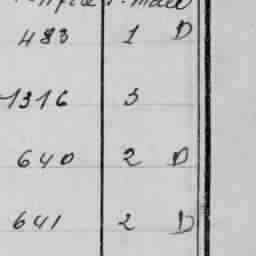 483 1 D
1316 3
640 2 D
641 2 D